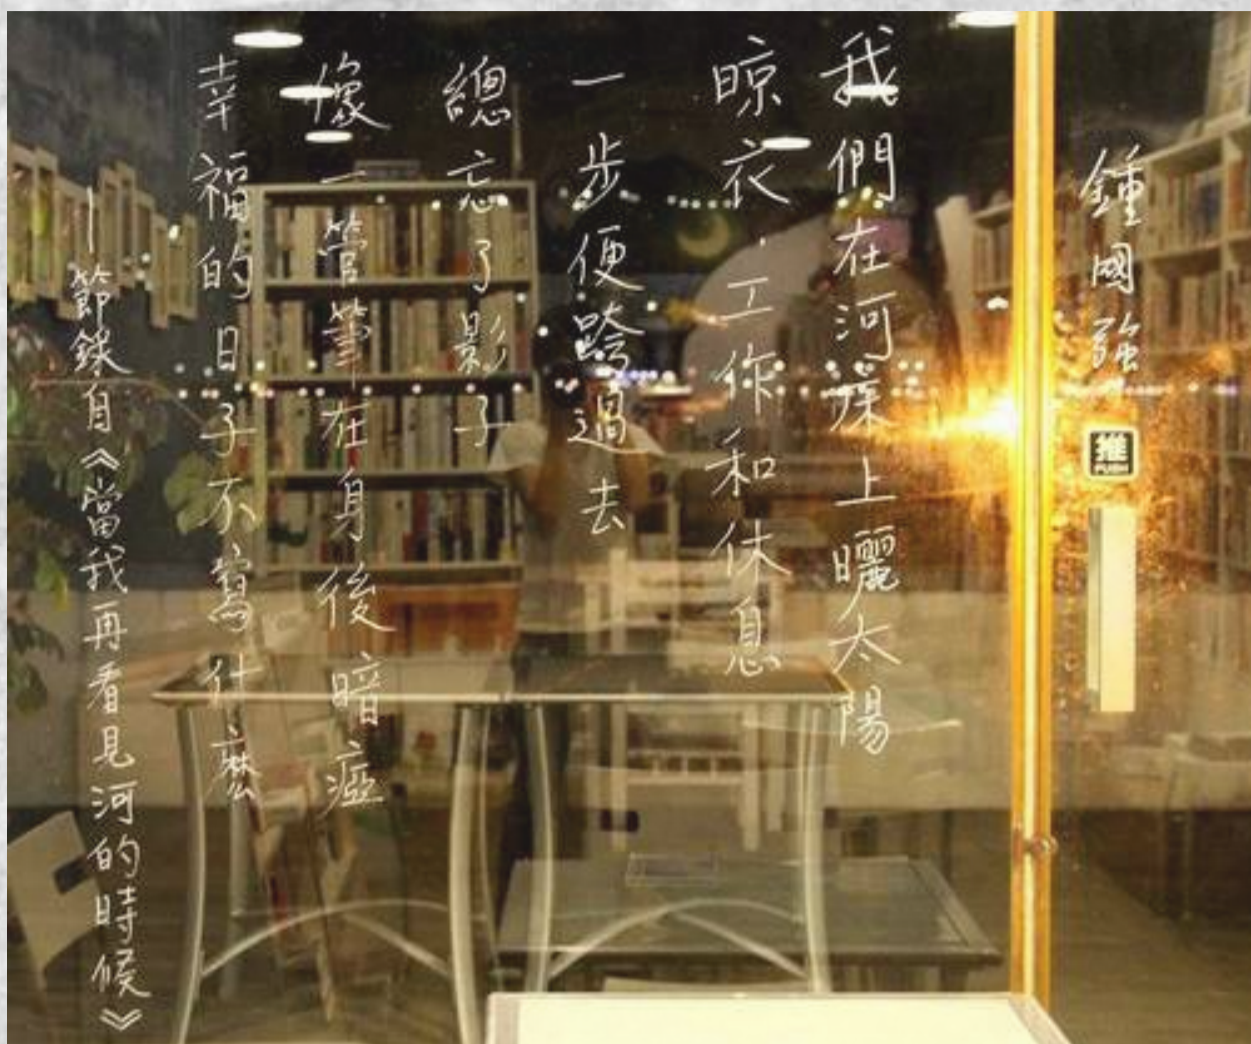 鍾國強
我們在河床上曬太陽
晾衣.工作和休息
一步便跨過去
總忘了影子
像一管筆在身後暗瘂
幸福的日子不寫什麼
——節錄自《當我再看見河的時候》
推
PUSH